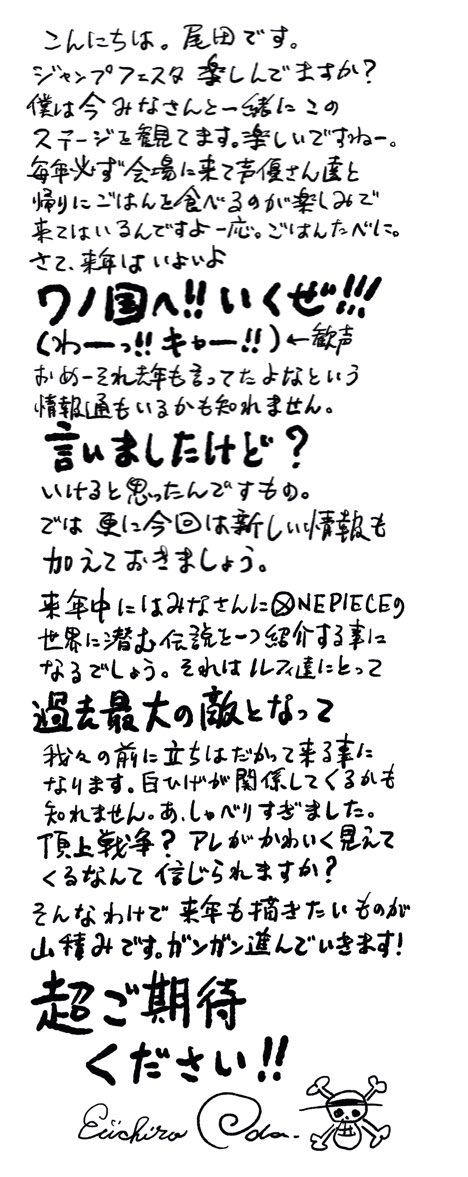 こんにちは。尾田です。
ジャンプフェスタ 楽しんでますか?
僕は今 みなさんと一緒に この
ステージを観てます。楽しいですねー。
毎年必ず会場に来て声優さん達と
帰りにごはんを食べるのが楽しみで
来てはいるんですよ一応。ごはんたべに。
さて、来年は いよいよ
ワノ国へ!! いくぜ!!!
(わーっ!! キャー!!)←歓声
おめーそれ去年も言ってたよなという
情報通もいるかも知れません。
言いましたけど?
いけると思ったんですもの。
では 更に今回は新しい情報も
加えておきましょう。
来年中にはみなさんにONEPIECEの
世界に潜む伝説を一つ紹介する事に
なるでしょう。それはルフィ達にとって
過去最大の敵となって
我々の前に立ちはだかって来る事に
なります。白ひげが関係してくるかも
知れません。あ、しゃべりすぎました。
頂上戦争? アレがかわいく見えて
くるなんて 信じられますか?
そんなわけで 来年も描きたいものが
山積みです。ガンガン進んでいきます!
超ご期待
ください!!
Eiichiro Oda.